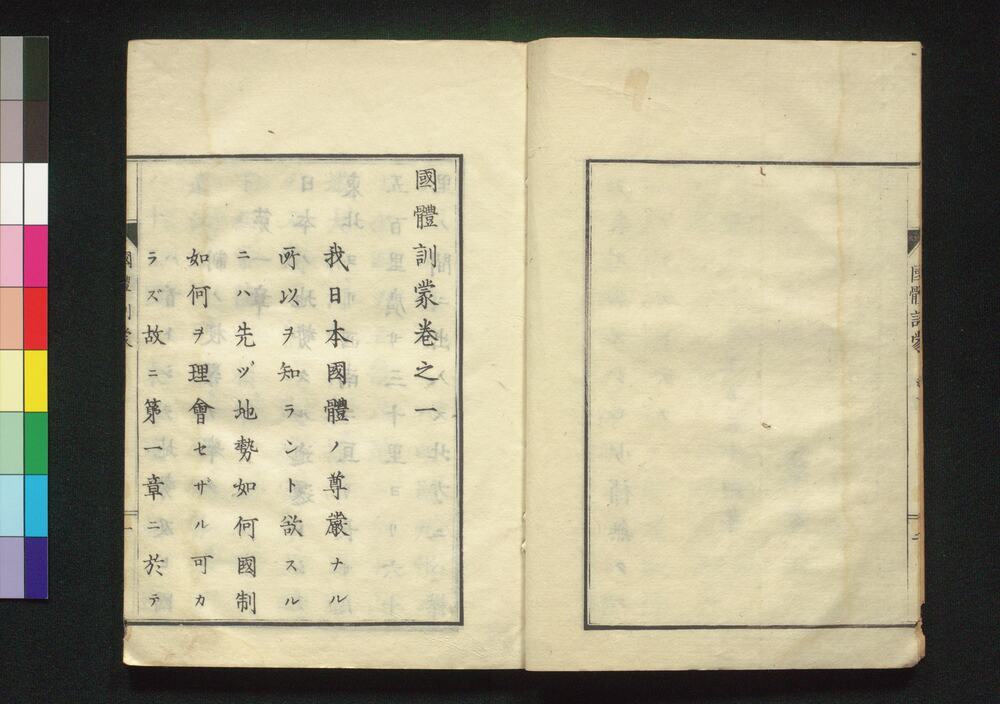 國體訓蒙
國體訓蒙卷之一
我日本國體ノ尊嚴ナル
所以ヲ知ラント欲スル
ニハ先ヅ地勢如何國制
如何ヲ理會セザル可カ
ラズ故ニ第一章ニ於テ
國體訓蒙
一